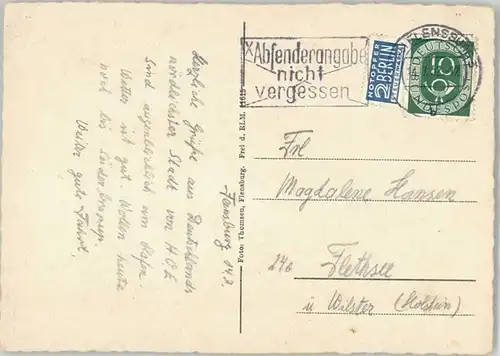 Herzliche Grüße aus Deutschlands
nördlichster Stadt von
Sind augenblicklich am Hafen.
Wetter ist gut. Wollen heute
noch bis
Weiter gute Fahrt.
Flensburg 14.7.
Foto: Thomsen, Flensburg. Frei d. RLM.
Absenderangabe
nicht
vergessen
NOTOPFER
2 BERLIN
STEUERMARKE
FLENSBURG
DEUTSCHE
10
BUNDESPOST
Frl
Magdalene Hansen
24b
Flethsee
ü Wilster (Holstein)